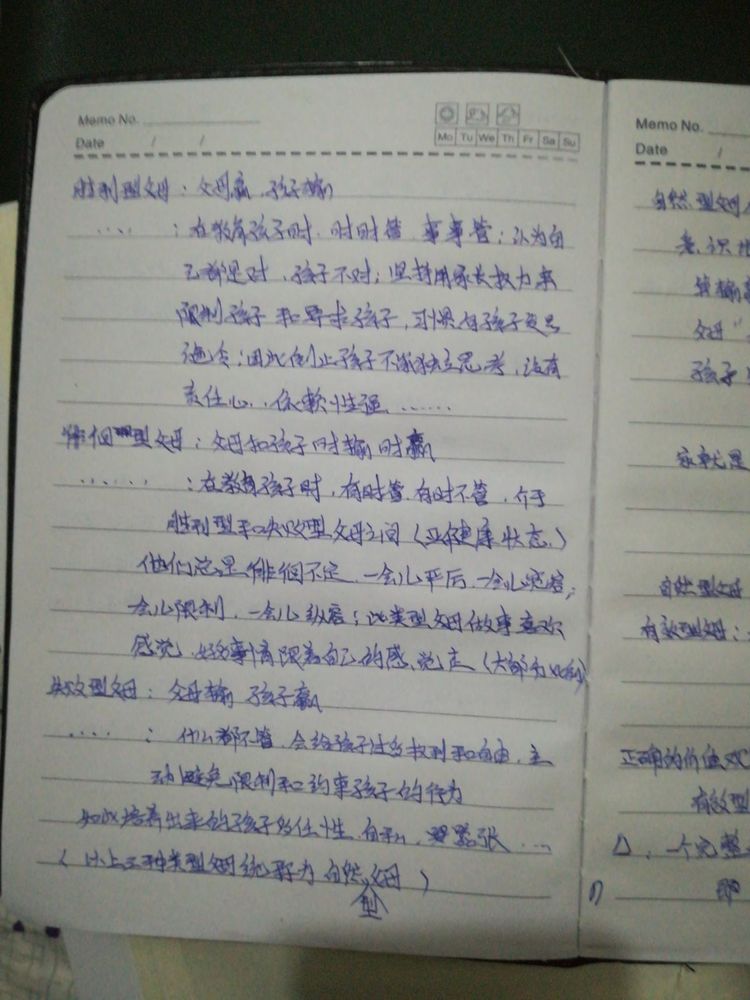 Memo No.
Date / /
Mo Tu We Th Fr Sa Su
胜利型父母：父母赢、孩子输
.....：在教育孩子时、时时管、事事管；认为自
己都是对、孩子不对；坚持用家长权力来
限制孩子和要求孩子，习惯对孩子发号
因此制止孩子不能独立思考，没有
责任心、依赖性强......
徘徊型父母：父母和孩子时输时赢
......：在教育孩子时，有时管、有时不管，介于
胜利型和失败型父母之间（亚健康状态）
他们总是徘徊不定、一会儿严厉、一会儿宽容；
一会儿限制、一会儿纵容；此类型父母做事喜欢
感觉、好多事情跟着自己的感觉走（大部分
失败型父母：父母输 孩子赢
....：什么都不管、会给孩子过多权利和自由，主
动避免限制和约束孩子的行为
如此培养出来的孩子多任性、自私、嚣张...
（以上三种类型父母统称为自然型父母）
Memo No.
Date /
自然型父母
意识
父母
孩子
自然型父母
有效型父母：
正确的价值观
有效型
一个完整
即